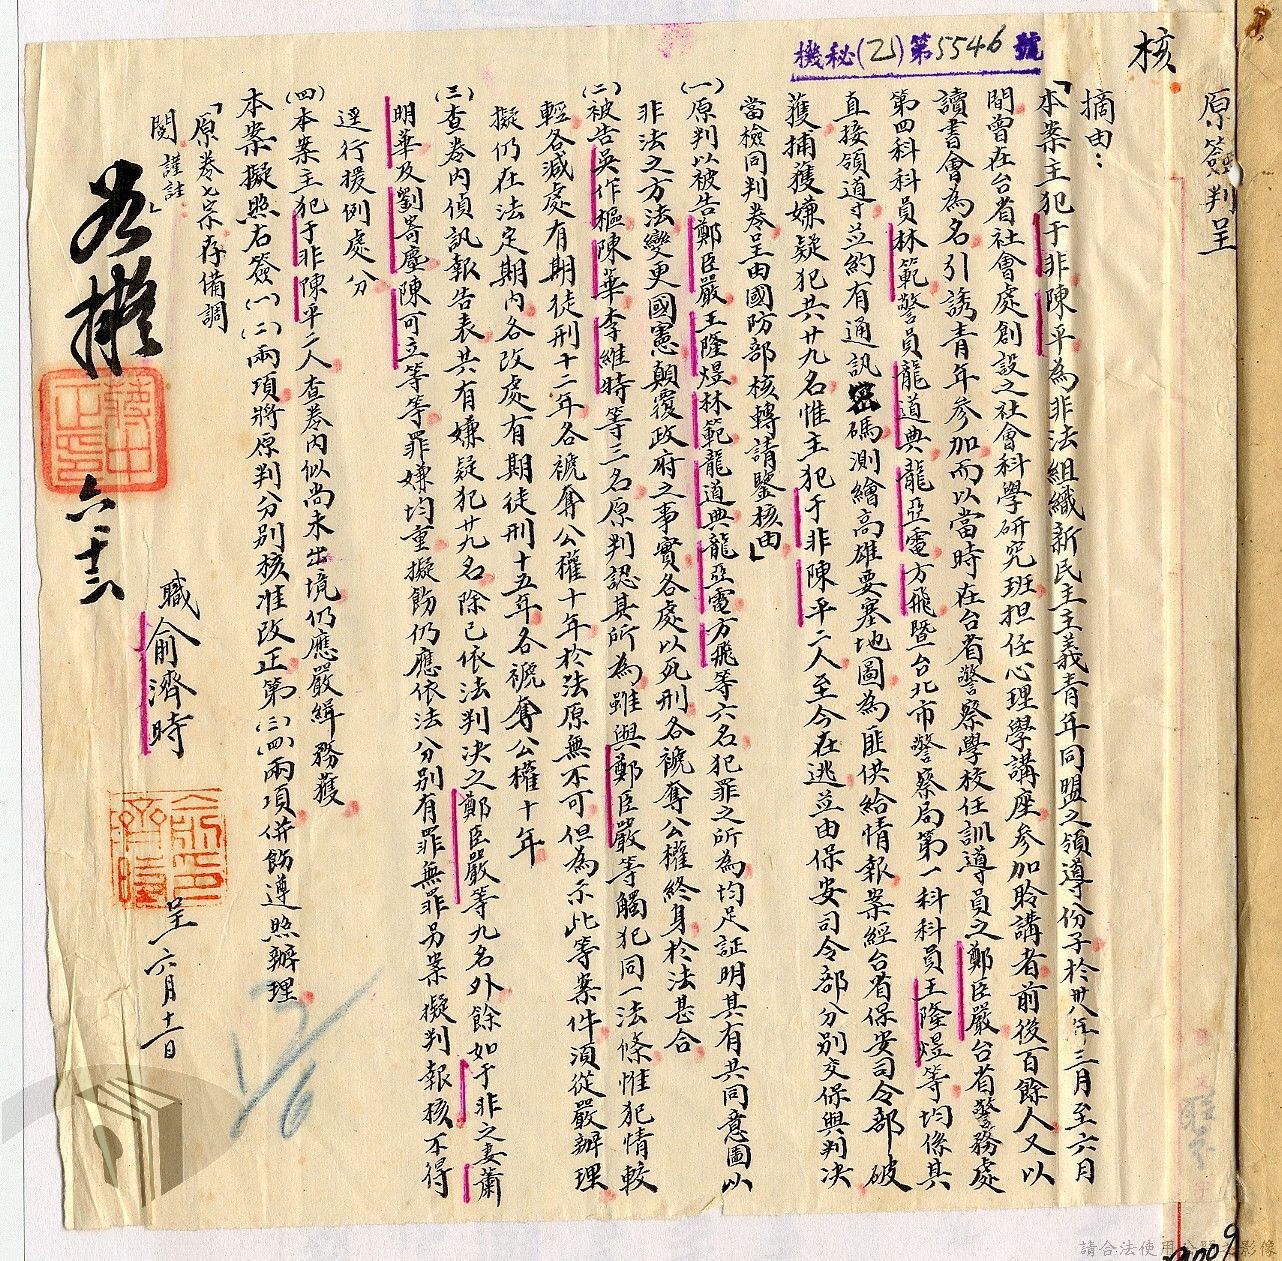 核
原簽判呈
機秘(乙)第5546號
摘由：
「本案主犯于非陳平為非法組織新民主主義青年同盟之領導份子於卅八年三月至六月
間曾在台省社會處創設之社會科學研究班担任心理學講座參加聆講者前後百餘人又以
讀書會為名引誘青年參加而以當時在台省警察學校任訓導員之鄭臣嚴台省警務處
第四科科員林範警員龍道典龍亞電方飛暨台北市警察局第一科科員王隆煜等均係其
直接領導予並約有通訊密碼測繪高雄要塞地圖為匪供給情報案經台省保安司令部破
獲捕獲嫌疑犯共廿九名惟主犯于非陳平二人至今在逃並由保安司令部分別交保與判決
當檢同判卷呈由國防部核轉請鑒核由」
(一)原判以被告鄭臣嚴王隆煜林範龍道典龍亞電方飛等六名犯罪之所為均足証明其有共同意圖以
非法之方法變更國憲顛覆政府之事實各處以死刑各褫奪公權終身於法甚合
(二)被告吳作樞陳華李維時等三名原判認其所為雖與鄭臣嚴等觸犯同一法條惟犯情較
輕各減處有期徒刑十二年各褫奪公權十年於法原無不可但為示此等案件須從嚴辦理
擬仍在法定期內各改處有期徒刑十五年各褫奪公權十年
(三)查卷內偵訊報告表共有嫌疑犯廿九名除已依法判決之鄭臣嚴等九名外餘如于非之妻蕭
明華及劉嵜塵陳可立等等罪嫌均重擬飭仍應依法分別有罪無罪另案擬判報核不得
逕行援例處分
(四)本案主犯于非陳平二人查卷內似尚未出境仍應嚴緝務獲
本案擬照右簽(一)(二)兩項將原判分別核准改正第(三)(四)兩項併飭遵照辦理
「原卷七宗存備調
閱 謹註」
如擬
蔣中正印
六 十六
職俞濟時
俞濟時印
呈 六月十一日
7/6
請合法使用公開之影像